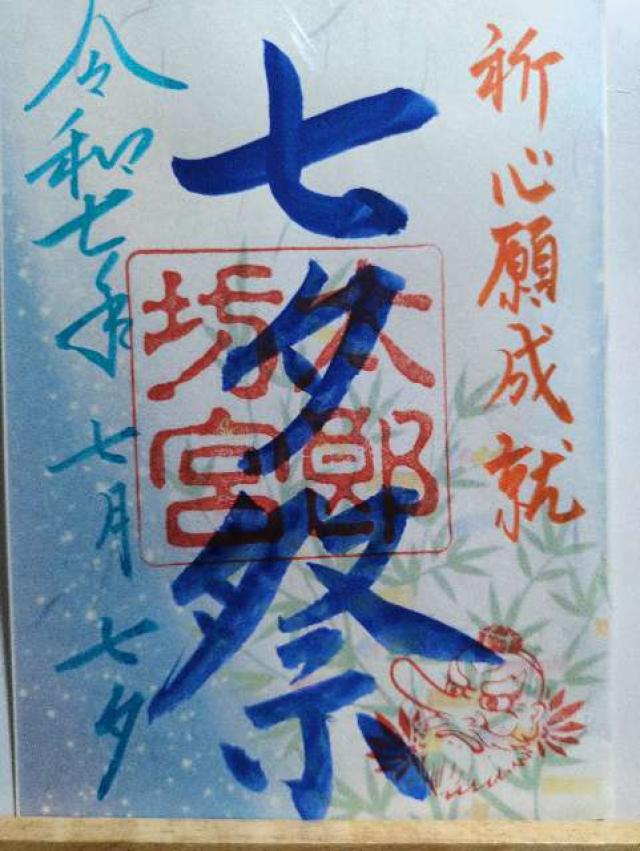 祈心願成就
七夕祭
太郎
坊宮
令和七年 七月 七夕